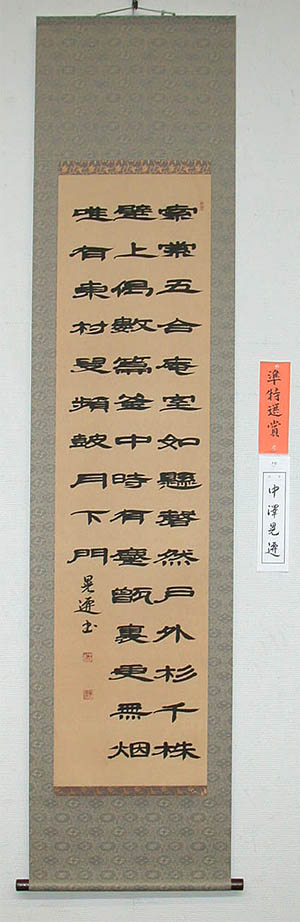 索索五合庵室如懸磬然戶外杉千株
壁上偈數篇釜中時有塵甑裏更無烟
唯有東村叟頻敲月下門
晃遷書
準特選賞
中澤晃遷